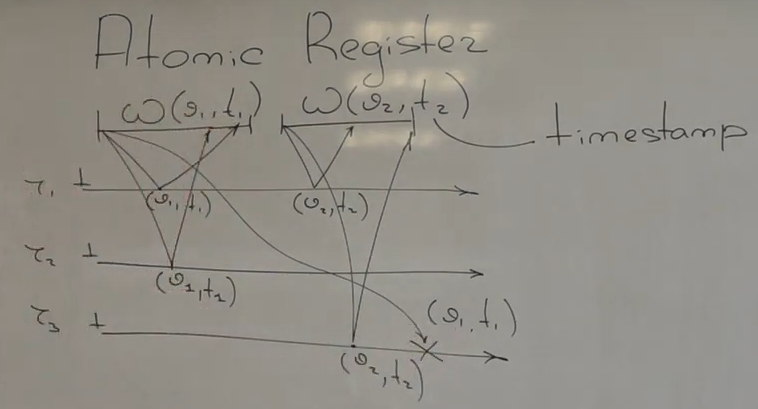 Atomic Register
ω(ϑ₁, t₁) ω(ϑ₂, t₂) timestamp
r₁ ⊥ (ϑ₁, t₁) (ϑ₂, t₂)
r₂ ⊥ (ϑ₁, t₁)
r₃ ⊥ (ϑ₁, t₁)
(ϑ₂, t₂)